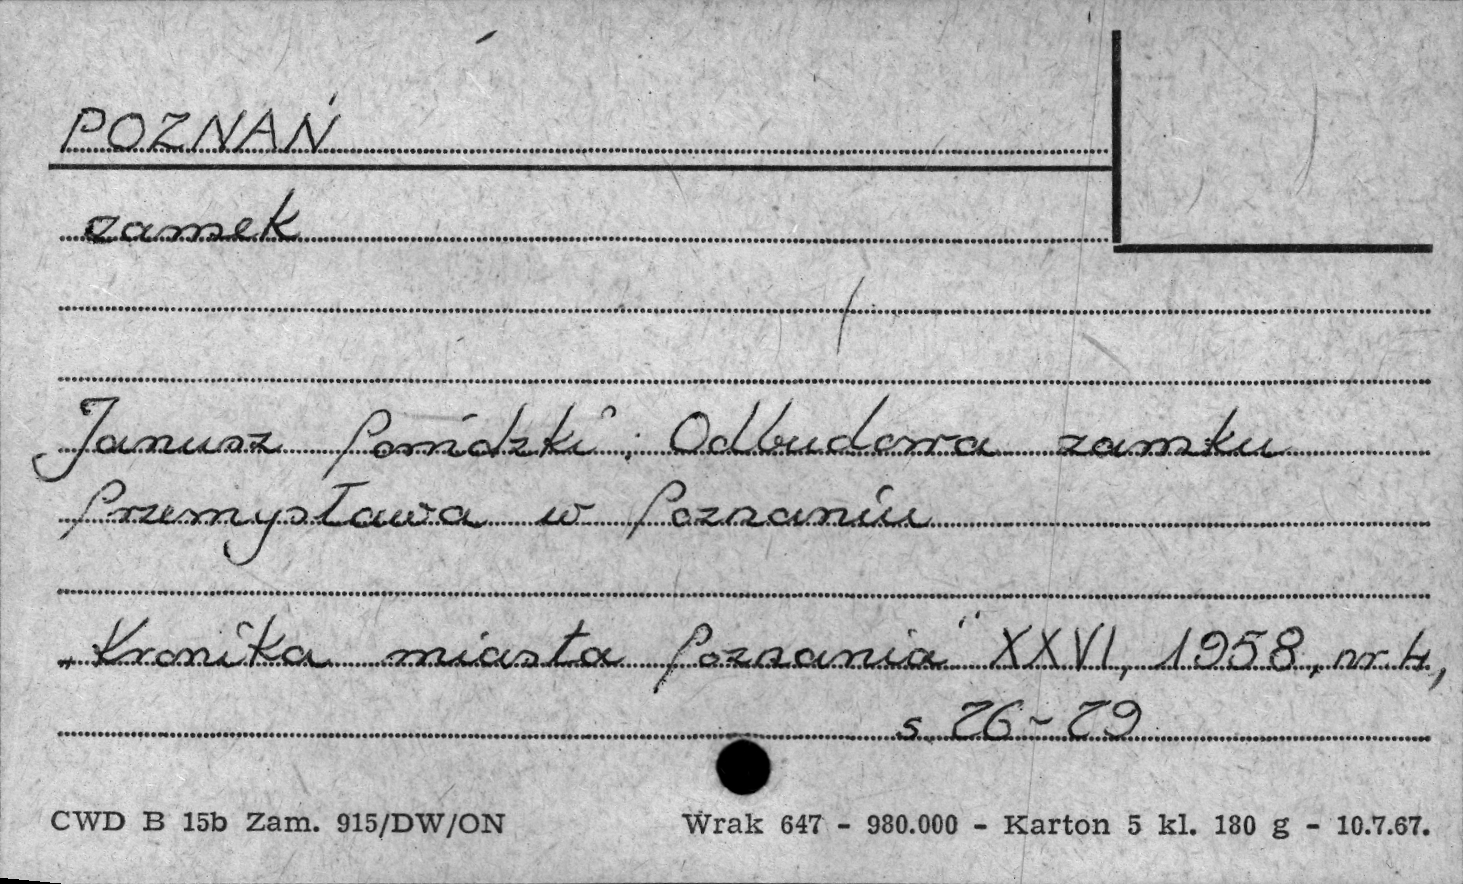 POZNAŃ
zamek
Janusz Powidzki; Odbudowa zamku
Przemysława w Poznaniu
„Kronika miasta Poznania" XXVI, 1958, nr 4,
s. 76-79
CWD B 15b Zam. 915/DW/ON Wrak 647 - 980.000 - Karton 5 kl. 180 g - 10.7.67.